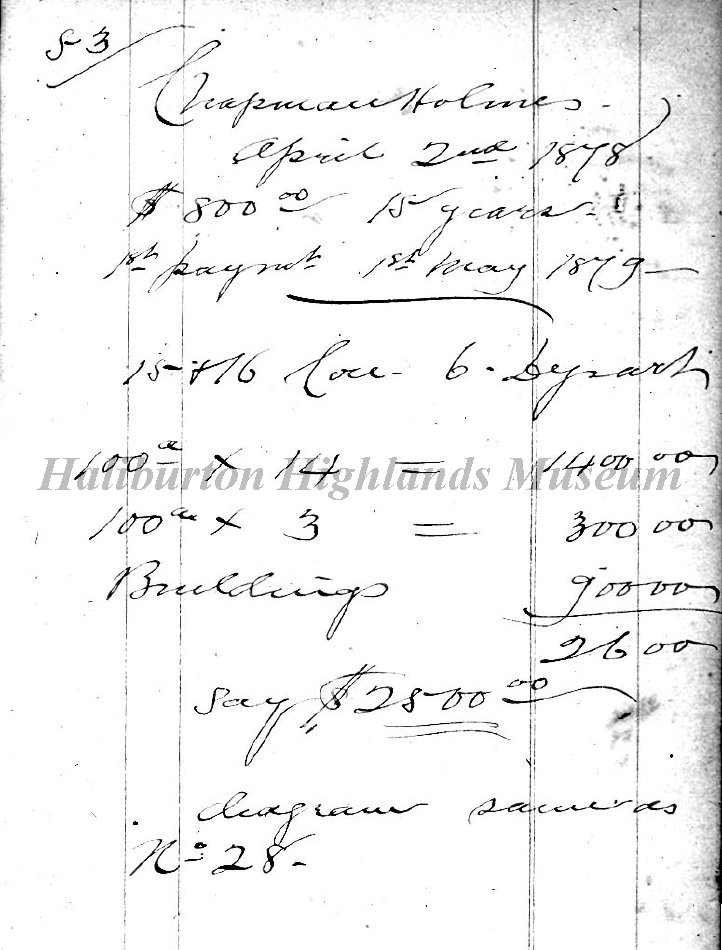 53
Chapman Holmes -
April 2nd 1878
$ 800 00 15 years -
1st paymt 1st May 1879 -
15 + 16 Con - 6 - Dysart
100 a x 14 = 1400 00
Haliburton Highlands Museum
100 ac x 3 = 300 00
Buildings 900 00
26 00
say $ 2500 00
diagram same as
No 28 -